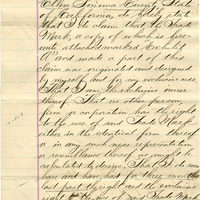 Allen Sonoma County, State
of California, do hereby state
that I do claim that the Trade
Mark, a copy of which is here
unto attached marked Exhibit
"A" and made a part of this
claim was originated and designed
by myself and for my exclusive use
That I am the exclusive owner
thereof. That no other person
firm or corporation has the right
to the use of said Trade Mark
either in the identical form thereof
or in any such near representation
or resemblance thereof as might be
calculated to deceive. That I do now
have and have had for three months
last past the right and the exclusive
right to the use of said Trade Mark